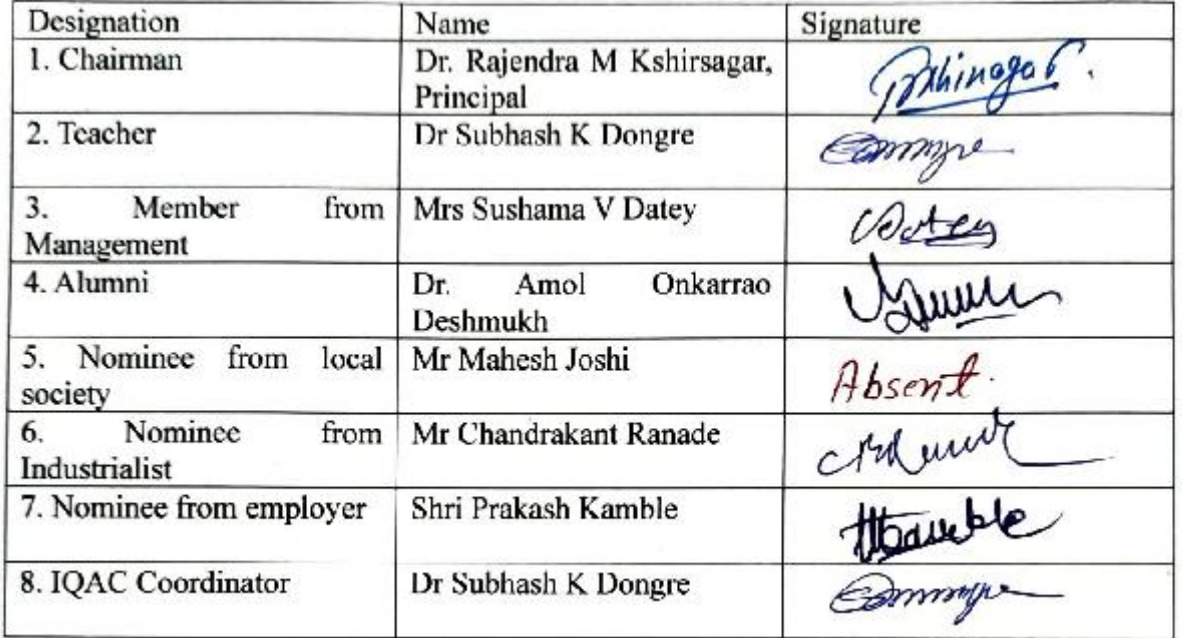 Designation Name Signature
1. Chairman Dr. Rajendra M Kshirsagar,
Principal
2. Teacher Dr Subhash K Dongre
3. Member from Mrs Sushama V Datey
Management
Datey
4. Alumni Dr. Amol Onkarrao
Deshmukh
5. Nominee from local Mr Mahesh Joshi
society
Absent.
6. Nominee from Mr Chandrakant Ranade
Industrialist
7. Nominee from employer Shri Prakash Kamble
8. IQAC Coordinator Dr Subhash K Dongre